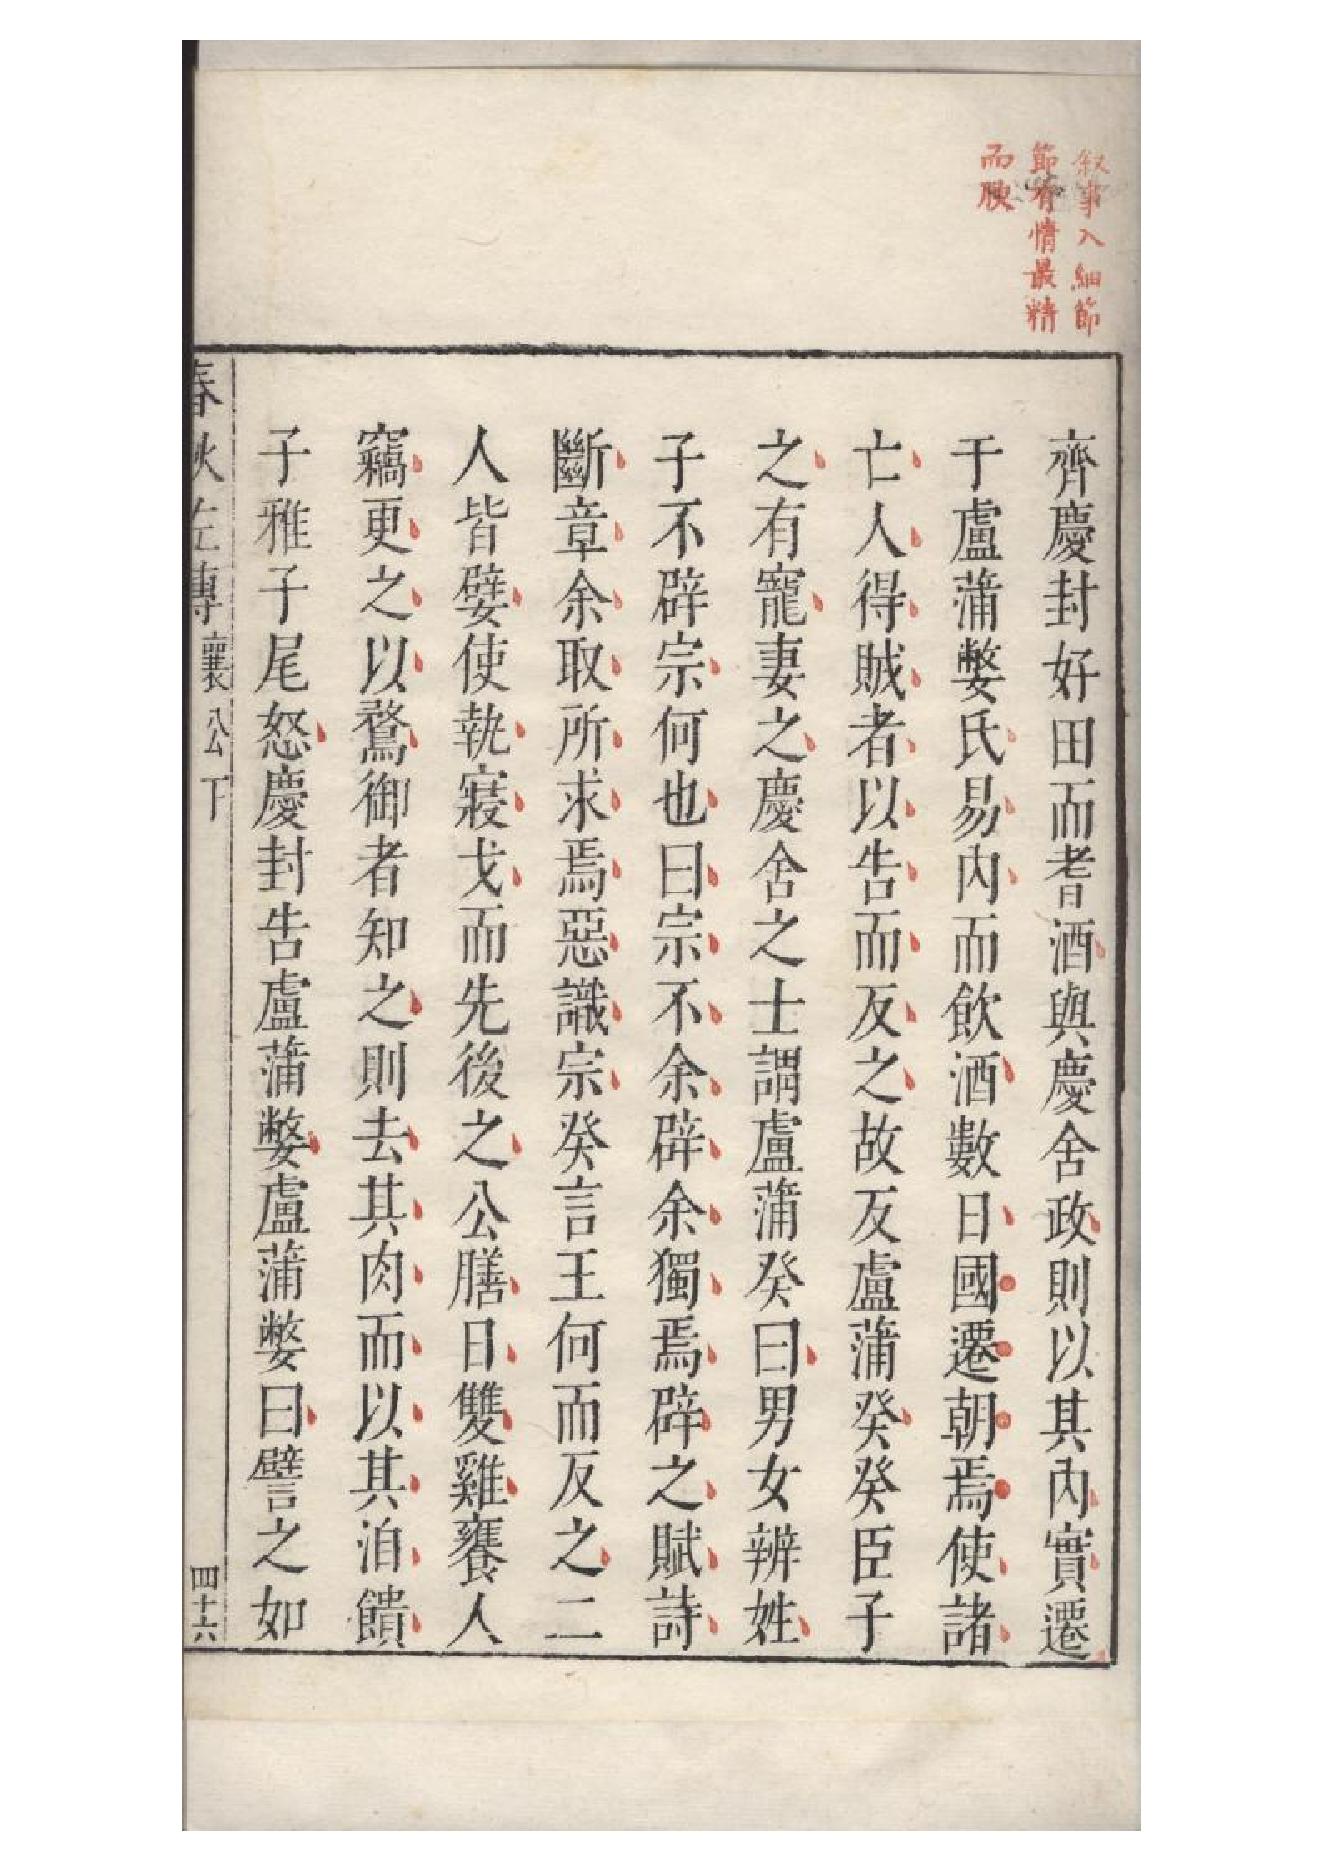 叙事入細節
節有情最精
而腴
齊慶封好田而耆酒與慶舍政則以其內實遷
于盧蒲嫳氏易內而飲酒數日國遷朝焉使諸
亡人得賊者以告而反之故反盧蒲癸癸臣子
之有寵妻之慶舍之士謂盧蒲癸曰男女辨姓
子不辟宗何也曰宗不余辟余獨焉辟之賦詩
斷章余取所求焉惡識宗癸言王何而反之二
人皆嬖使執寢戈而先後之公膳日雙雞饔人
竊更之以鶩御者知之則去其肉而以其洎饋
子雅子尾怒慶封告盧蒲嫳盧蒲嫳曰譬之如
春秋左傳 襄公下 四十六